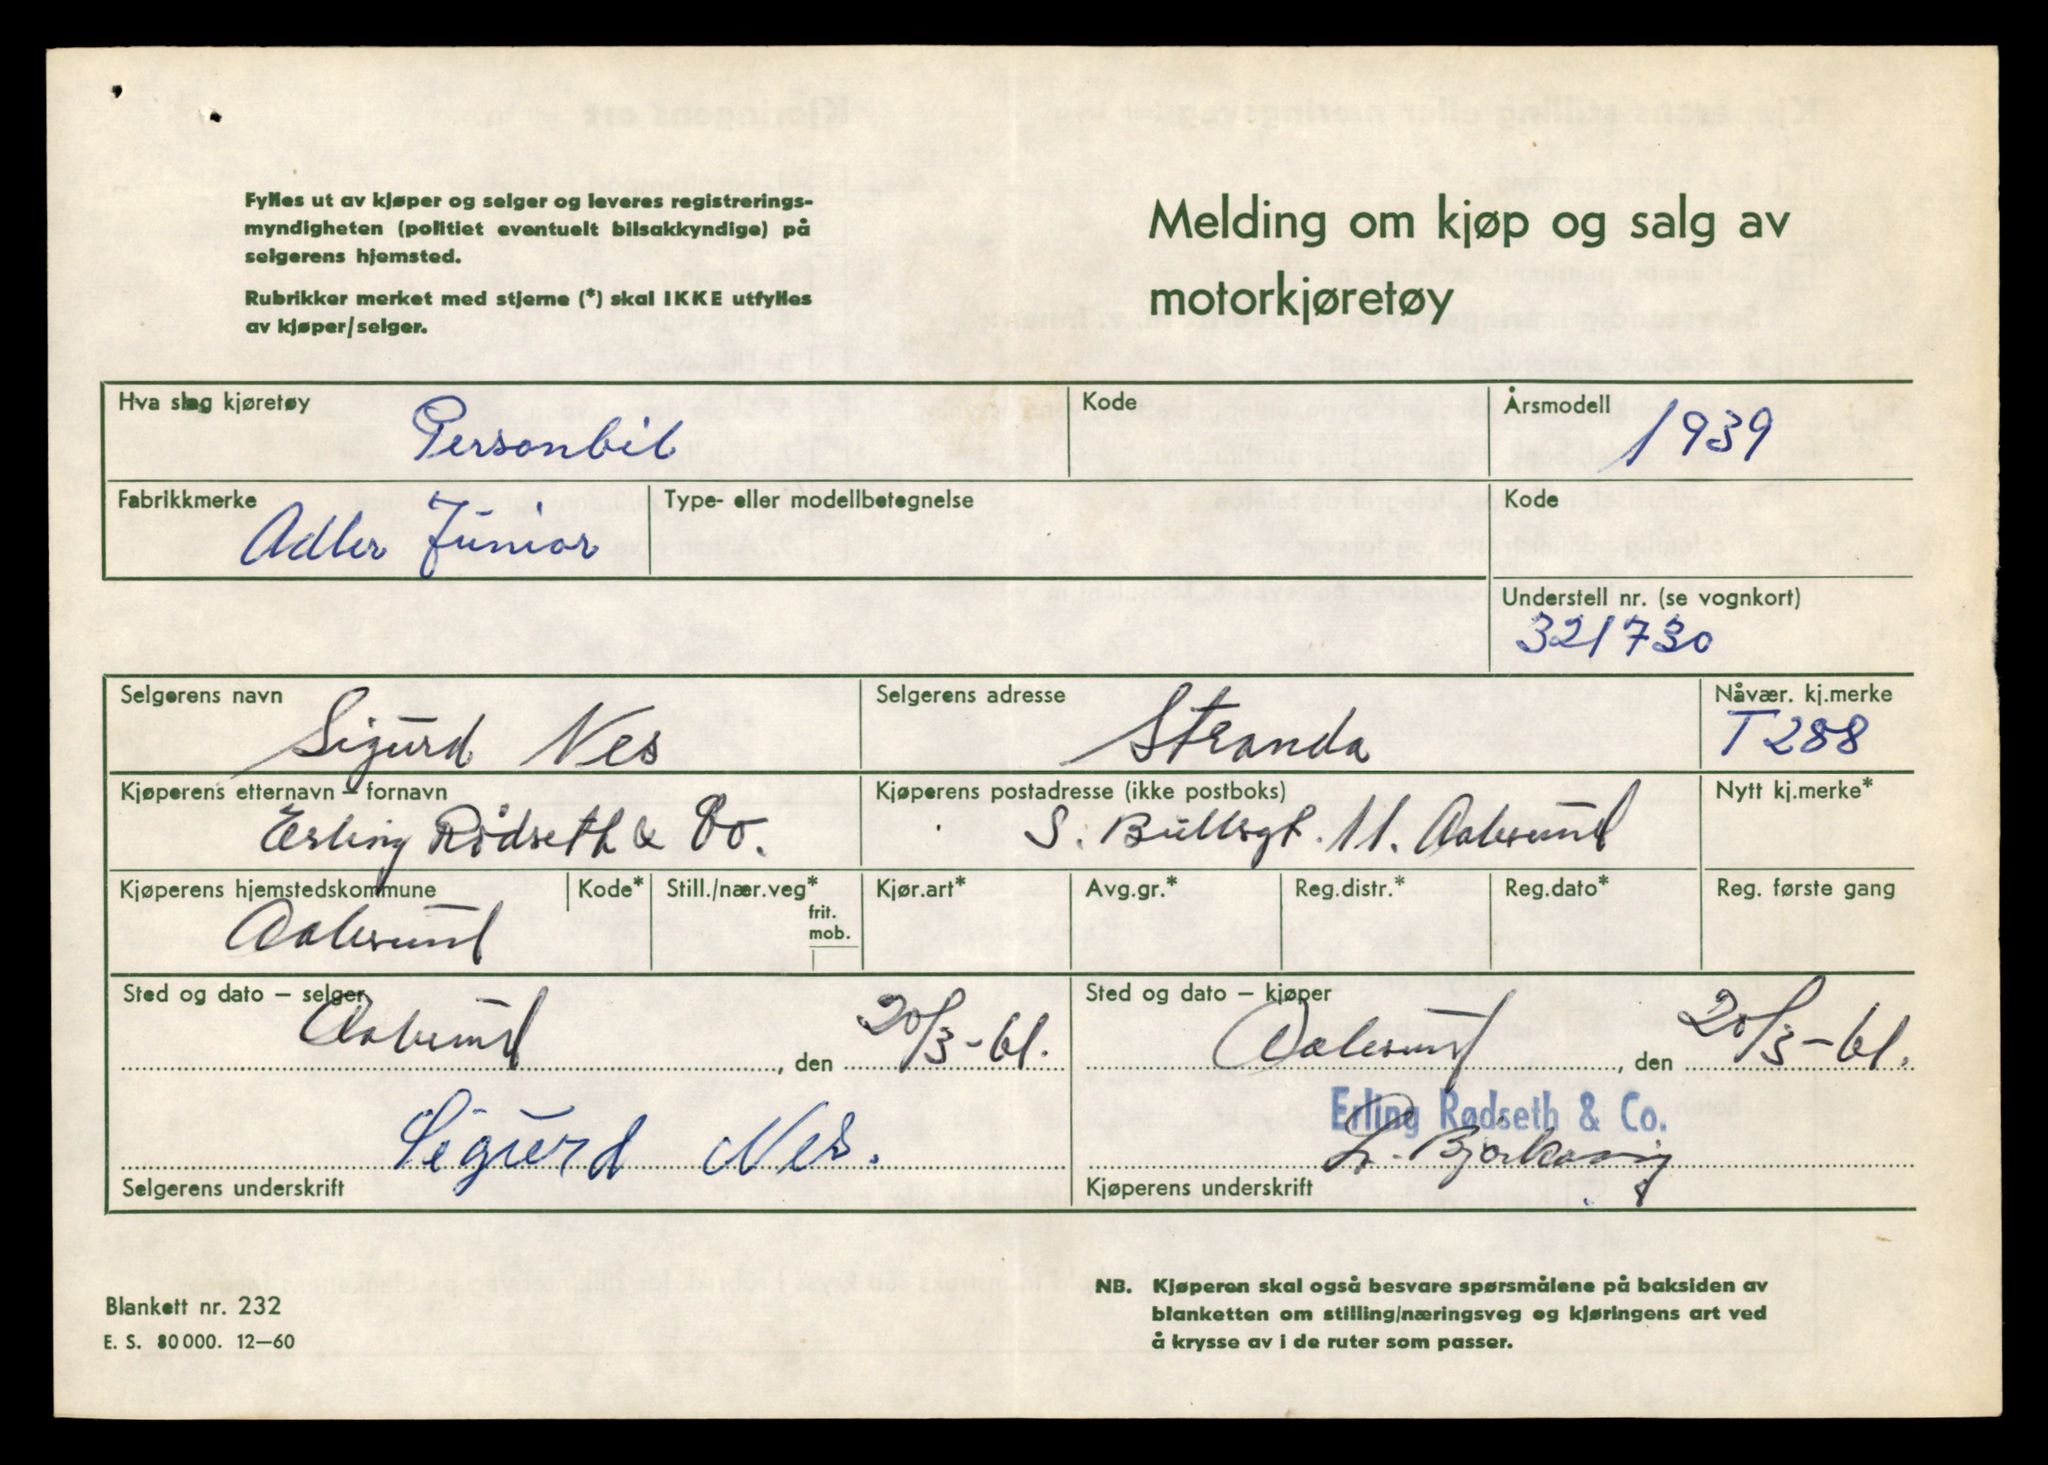 Fylles ut av kjøper og selger og leveres registrerings-
myndigheten (politiet eventuelt bilsakkyndige) på
selgerens hjemsted.
Rubrikker merket med stjerne (*) skal IKKE utfylles
av kjøper/selger.
Melding om kjøp og salg av
motorkjøretøy
Hva slag kjøretøy
Personbil
Kode
Årsmodell
1939
Fabrikkmerke
Adler Junior
Type- eller modellbetegnelse
Kode
Understell nr. (se vognkort)
321730
Selgerens navn
Sigurd Nes
Selgerens adresse
Stranda
Nåvær. kj.merke
T 288
Kjøperens etternavn – fornavn
Erling Rødseth & Co.
Kjøperens postadresse (ikke postboks)
S. Bullsgt. 11. Aalesund
Nytt kj.merke*
Kjøperens hjemstedskommune
Aalesund
Kode*
Still./nær.veg*
frit.
mob.
Kjør.art*
Avg.gr.*
Reg.distr.*
Reg.dato*
Reg. første gang
Sted og dato – selger
Aalesund, den 20/3-61.
Sted og dato – kjøper
Aalesund, den 20/3-61.
Sigurd Nes.
Selgerens underskrift
Erling Rødseth & Co.
Kjøperens underskrift
Blankett nr. 232
E. S. 80 000. 12–60
NB. Kjøperen skal også besvare spørsmålene på baksiden av
blanketten om stilling/næringsveg og kjøringens art ved
å krysse av i de ruter som passer.